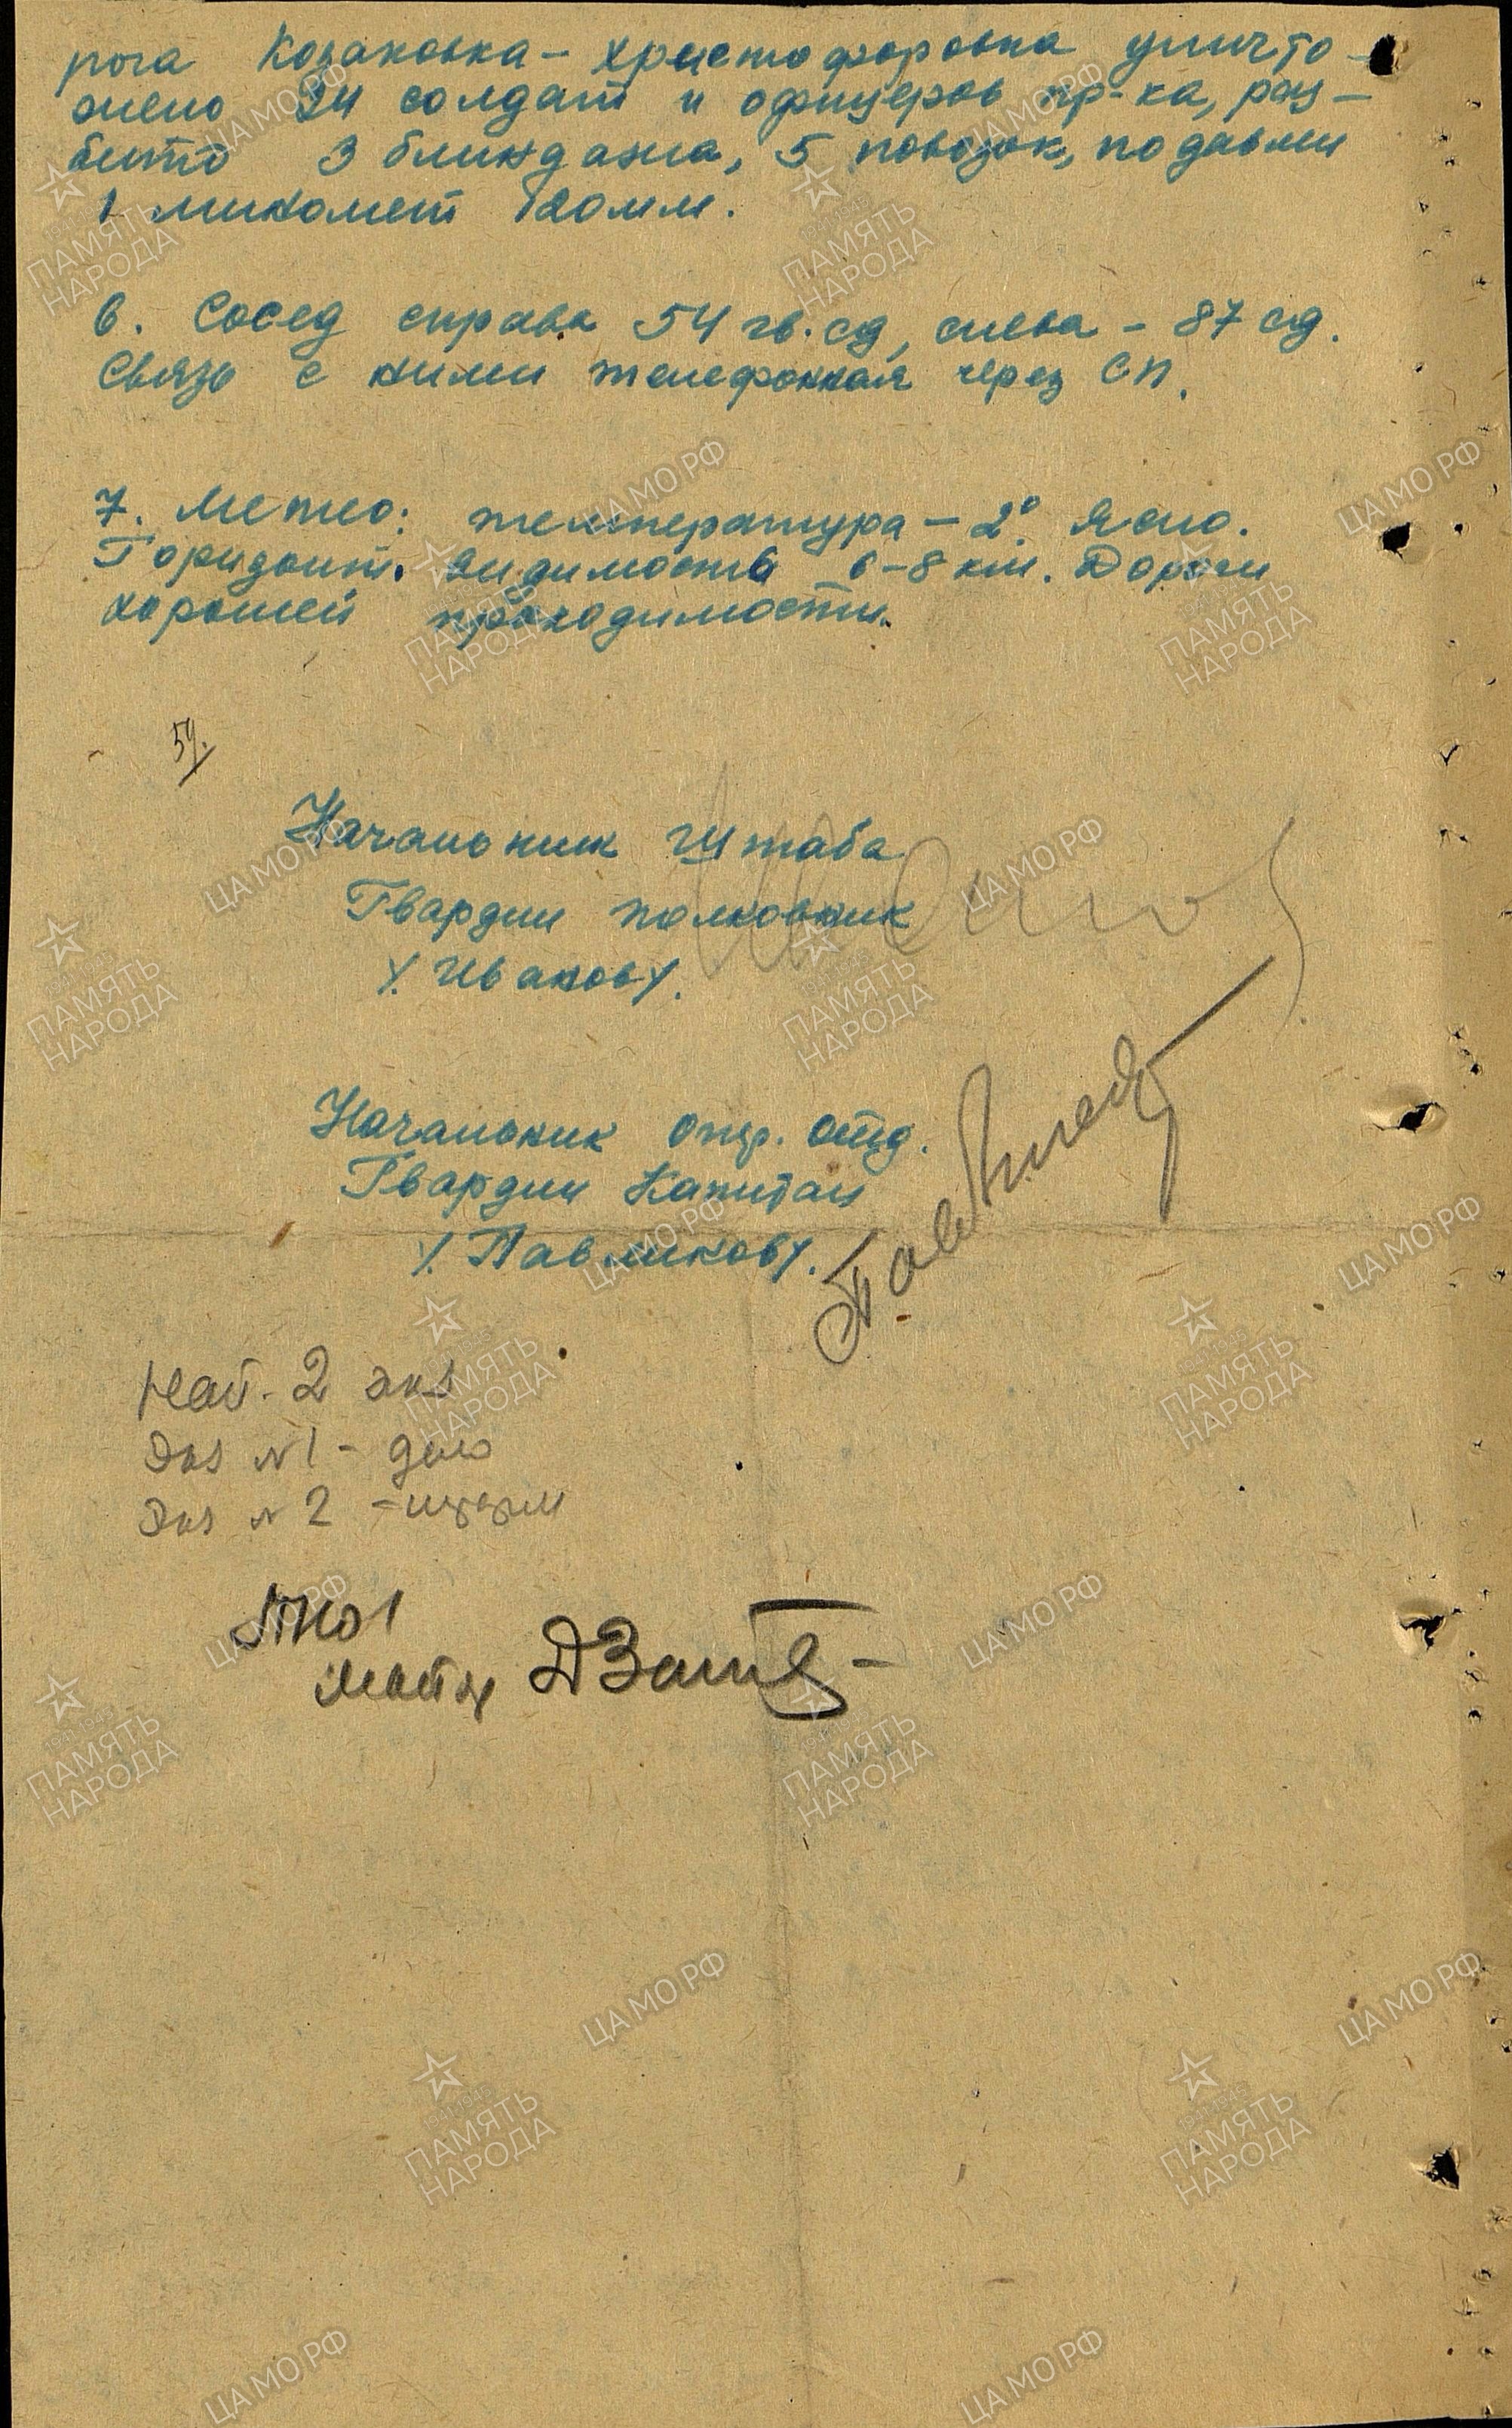 рога Козаковка - Христофоровка уничто-
жено 24 солдат и офицеров пр-ка, раз-
бито 3 блиндажа, 5 повозок, подавлен
1 миномет 120мм.
6. Сосед справа 54 гв. сд, слева - 87 сд.
Связь с ними телефонная через СП.
7. Метео: температура - 2°. Ясно.
Горизонт. видимость 6-8 км. Дороги
хорошей проходимости.
59.
Начальник Штаба
Гвардии полковник
/. Иванов/.
Начальник опер. отд.
Гвардии Капитан
/. Павликов/.
Нап. 2 экз
Экз №1 - дело
Экз №2 -
ПАМЯТЬ НАРОДА
ЦАМО РФ